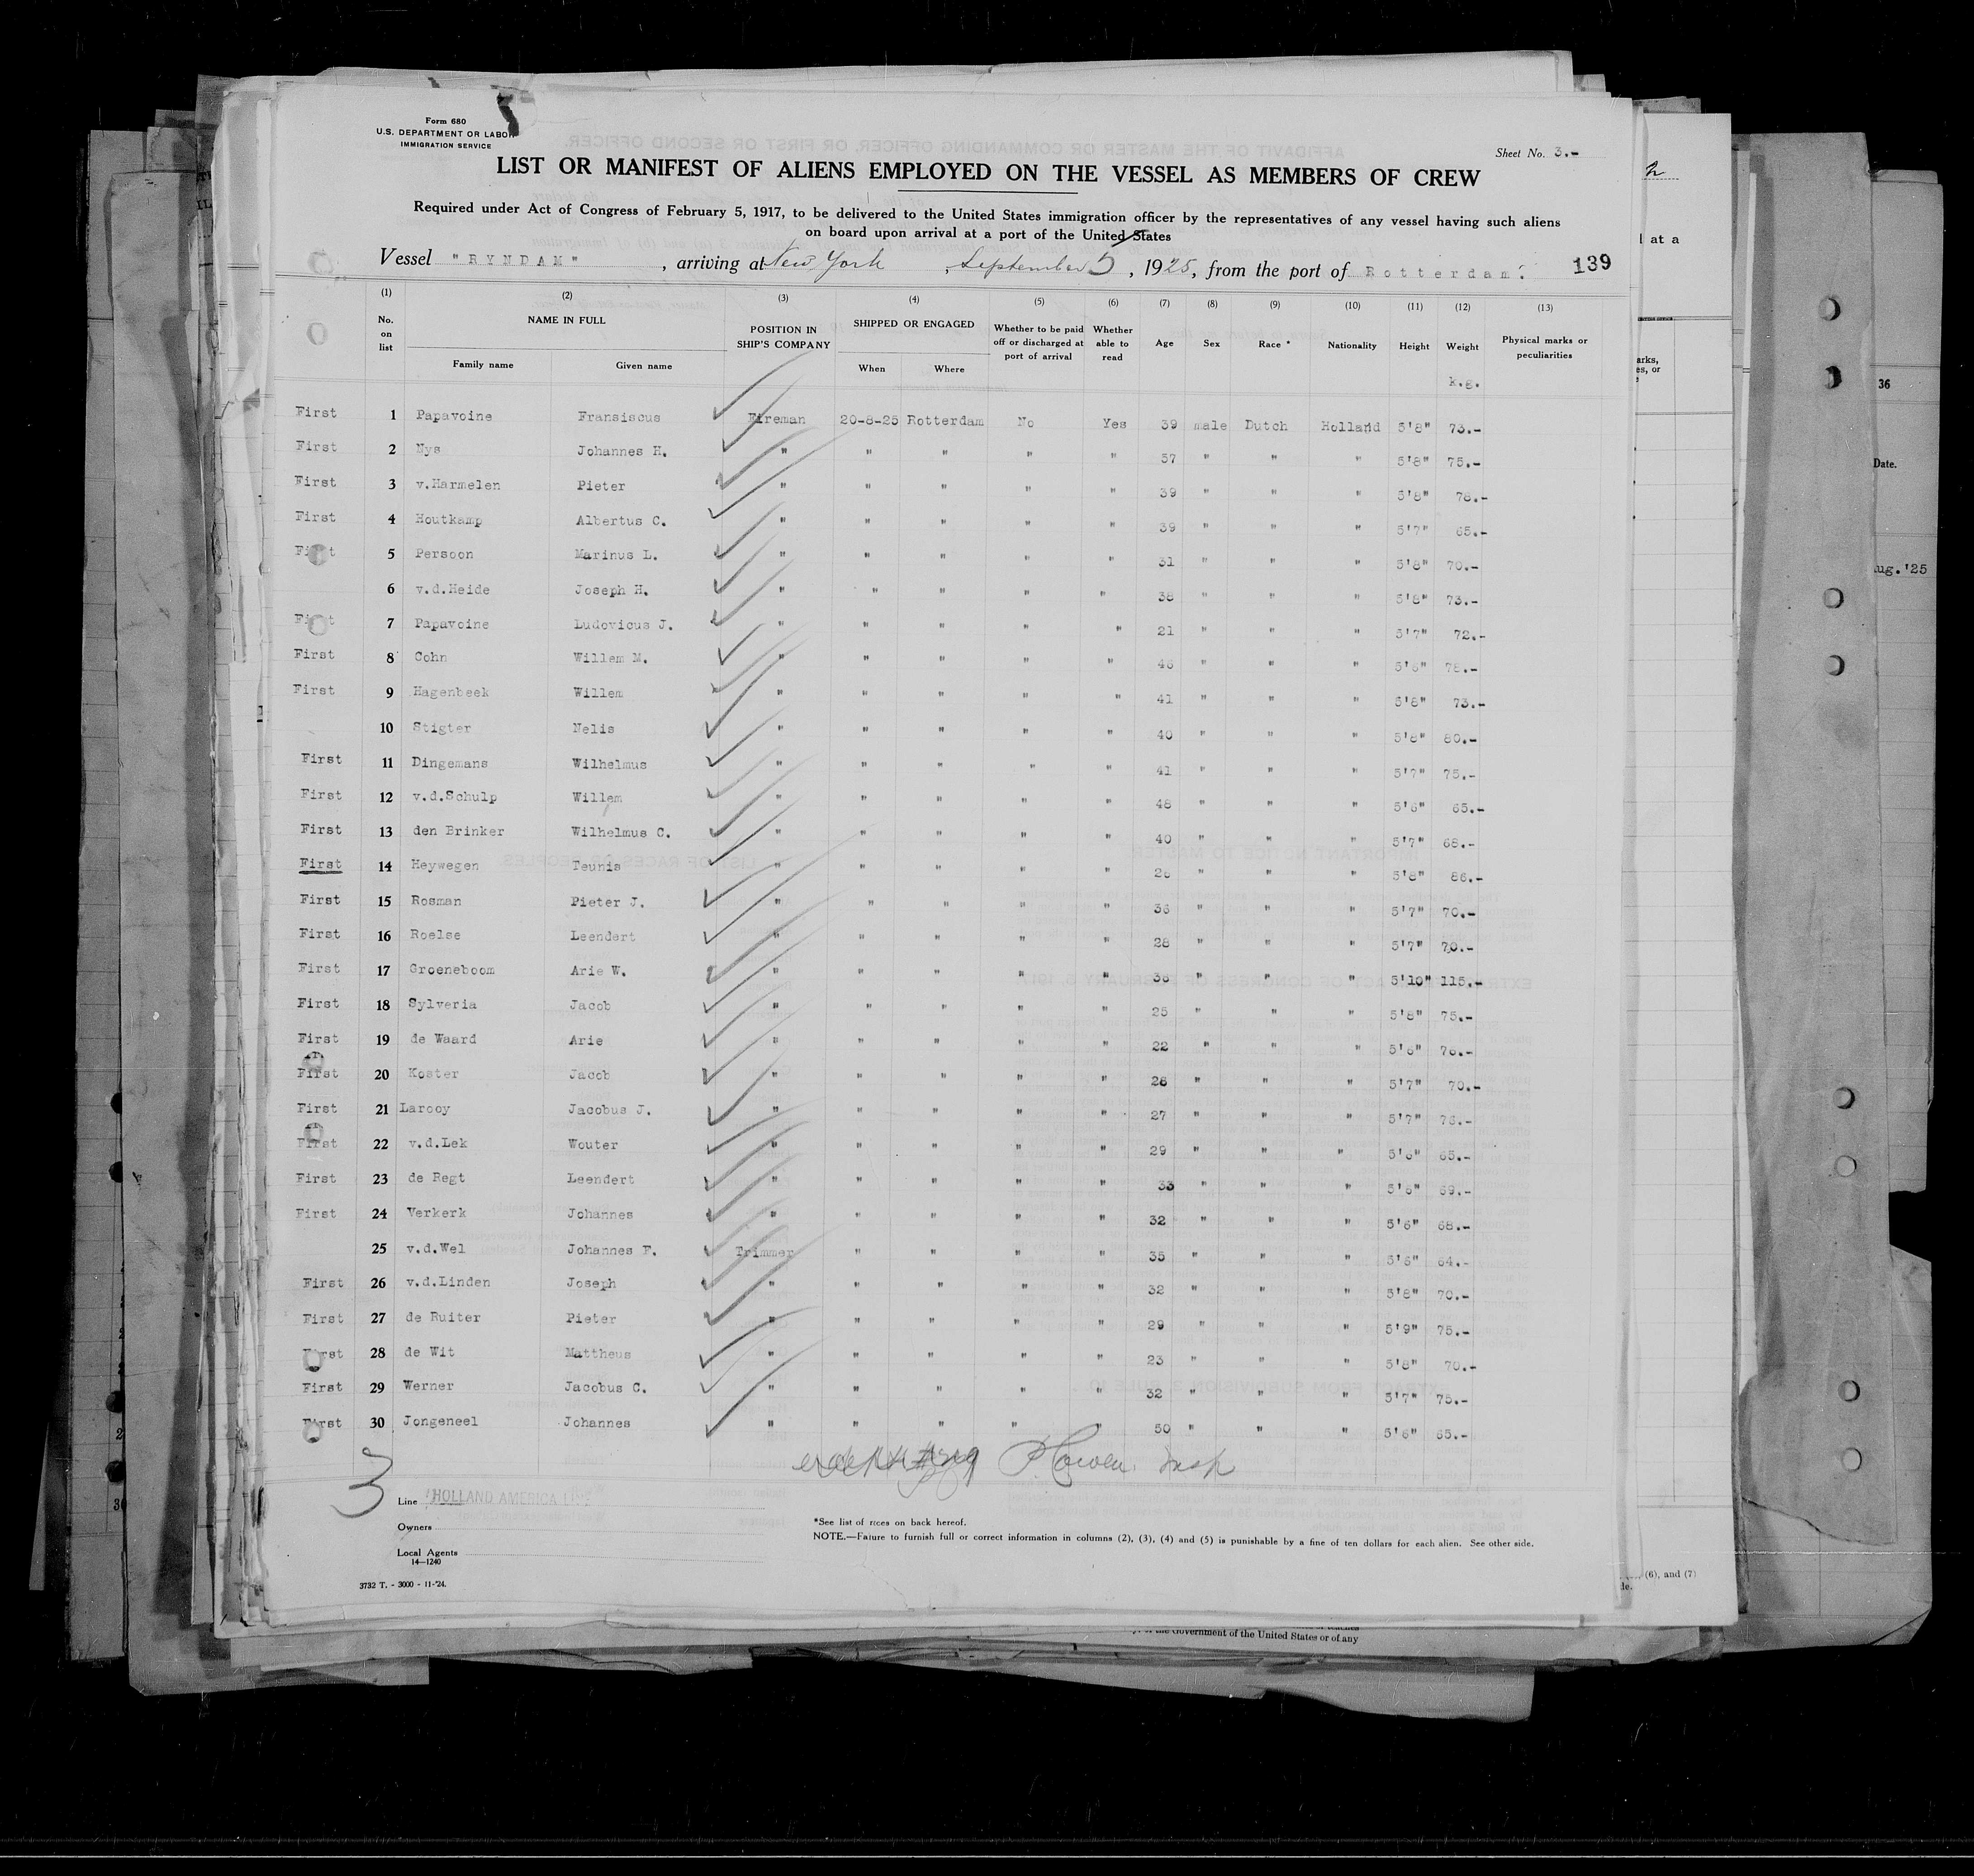 Form 680
U.S. DEPARTMENT OR LABOR
IMMIGRATION SERVICE
Sheet No. 3.-
LIST OR MANIFEST OF ALIENS EMPLOYED ON THE VESSEL AS MEMBERS OF CREW
Required under Act of Congress of February 5, 1917, to be delivered to the United States immigration officer by the representatives of any vessel having such aliens
on board upon arrival at a port of the United States
Vessel "RYNDAM", arriving at New York, September 5, 1925, from the port of Rotterdam. 139
(1) (2) (3) (4) (5) (6) (7) (8) (9) (10) (11) (12) (13)
No. on list NAME IN FULL Family name Given name POSITION IN SHIP'S COMPANY SHIPPED OR ENGAGED When Where Whether to be paid off or discharged at port of arrival Whether able to read Age Sex Race * Nationality Height Weight Physical marks or peculiarities
K.g.
First 1 Papavoine Fransiscus Fireman 20-8-25 Rotterdam No Yes 39 male Dutch Holland 5'8" 73.-
First 2 Nys Johannes H. " " " " " 57 " " " 5'8" 75.-
First 3 v.Harmelen Pieter " " " " " 39 " " " 5'8" 78.-
First 4 Houtkamp Albertus C. " " " " " 39 " " " 5'7" 65.-
First 5 Persoon Marinus L. " " " " " 31 " " " 5'8" 70.-
6 v.d.Heide Joseph H. " " " " " 38 " " " 5'8" 73.-
First 7 Papavoine Ludovicus J. " " " " " 21 " " " 5'7" 72.-
First 8 Cohn Willem M. " " " " " 46 " " " 75.-
First 9 Hagenbeek Willem " " " " " 41 " " " 5'8" 73.-
10 Stigter Nelis " " " " " 40 " " " 5'8" 80.-
First 11 Dingemans Wilhelmus " " " " " 41 " " " 5'7" 75.-
First 12 v.d.Schulp Willem " " " " " 48 " " " 5'6" 65.-
First 13 den Brinker Wilhelmus C. " " " " " 40 " " " 5'7" 68.-
First 14 Heywegen Teunis " " " " " " " " 5'8" 86.-
First 15 Rosman Pieter J. " " " " " 36 " " " 5'7" 70.-
First 16 Roelse Leendert " " " " " 28 " " " 5'7" 70.-
First 17 Groeneboom Arie W. " " " " " 38 " " " 5'10" 115.-
First 18 Sylveria Jacob " " " " " 25 " " " 5'8" 75.-
First 19 de Waard Arie " " " " " 22 " " " 5'6" 76.-
First 20 Koster Jacob " " " " " 28 " " " 5'7" 70.-
First 21 Larooy Jacobus J. " " " " " 27 " " " 5'7" 76.-
First 22 v.d.Lek Wouter " " " " " 29 " " " 5'6" 65.-
First 23 de Regt Leendert " " " " " 33 " " " 5'6" 69.-
First 24 Verkerk Johannes " " " " " 32 " " " 5'6" 68.-
25 v.d.Wel Johannes F. Trimmer " " " " 35 " " " 5'6" 64.-
First 26 v.d.Linden Joseph " " " " " 32 " " " 5'8" 70.-
First 27 de Ruiter Pieter " " " " " 29 " " " 5'9" 75.-
First 28 de Wit Mattheus " " " " " 23 " " " 5'8" 70.-
First 29 Werner Jacobus C. " " " " " 32 " " " 5'7" 75.-
First 30 Jongeneel Johannes " " " " " 50 " " " 5'6" 65.-
Insp
3
Line HOLLAND AMERICA LINE
Owners
Local Agents
14—1240
*See list of races on back hereof.
NOTE.—Faiure to furnish full or correct information in columns (2), (3), (4) and (5) is punishable by a fine of ten dollars for each alien. See other side.
3732 T. - 3000 - 11-'24.
l at a
36
Date.
ug.'25
(6), and (7)
the Government of the United States or of any